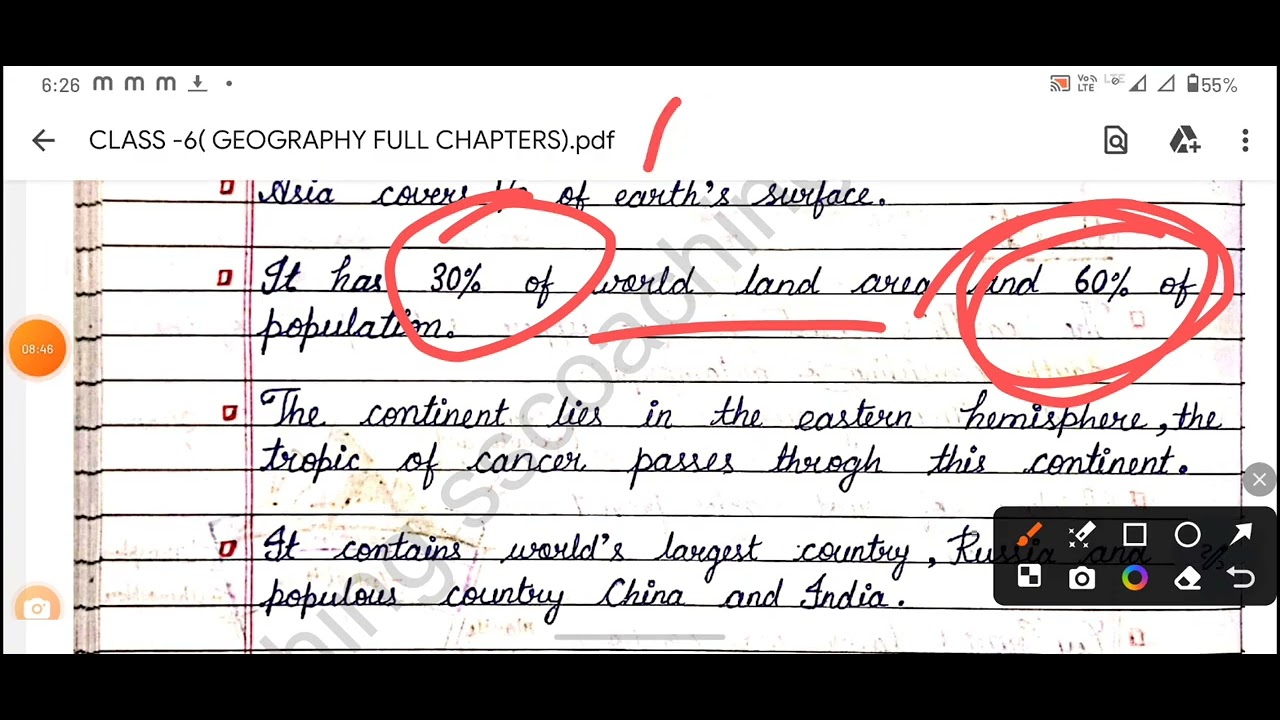 6:26 m m m 55%
CLASS -6( GEOGRAPHY FULL CHAPTERS).pdf
Asia covers of earth's surface.
It has 30% of world land area and 60% of
population.
08:46
The continent lies in the eastern hemisphere, the
tropic of cancer passes throgh this continent.
It contains world's largest country, Russia and
populous country China and India.
hing.sscoaching